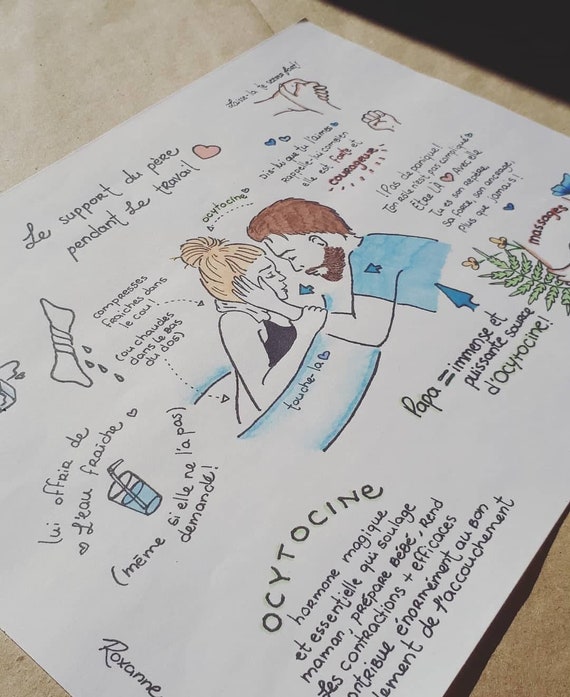 Le support du père
pendant le travail
Laisse-la te serrer fort!
Dis-lui que tu l'aimes
Rappelle-lui combien
elle est forte et
courageuse
! Pas de panique!
Ton rôle n'est pas compliqué
Être LÀ avec elle
Tu es son repère
Sa force, son ancrage,
Plus que jamais!
massages
ocytocine
compresses
fraîches dans
le cou
(ou chaudes
dans le bas
du dos)
touche-la
Papa = immense et
puissante source
d'OCYTOCINE!
lui offrir de
L'eau fraîche
(même si elle ne l'a pas
demandé!)
OCYTOCINE
hormone magique
et essentielle qui soulage
maman, prépare BÉBÉ, Rend
les contractions + efficaces
contribue énormément au bon
de l'accouchement
Roxanne